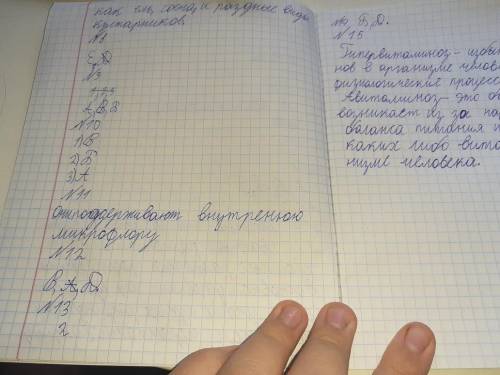 как ель, сосна, и разные виды
кустарников.
№1
Е, Д
№3
А, В, Д
№10
1) В
2) Б
3) А
№11
они поддерживают внутреннюю
микрофлору
№12
В, А, Д
№13
2
Б Д.
№15
Гипервитаминоз - избы
нов в организме челове
физиологические процесс
Авитаминоз - это
возникает из за на
баланса питания
каких либо вита
низме человека.